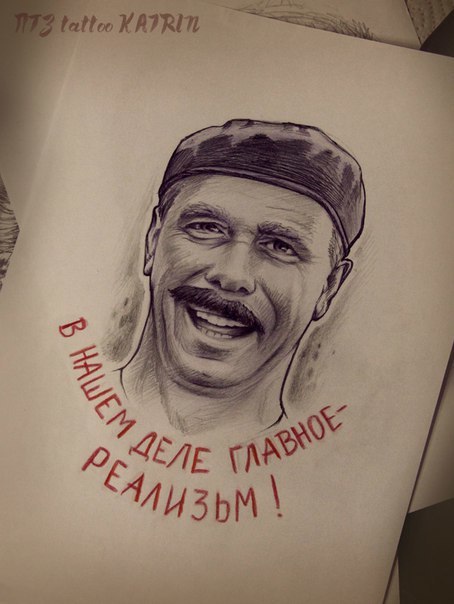 ПТЗ tattoo KATRIN
В НАШЕМ ДЕЛЕ ГЛАВНОЕ-
РЕАЛИЗЬМ!